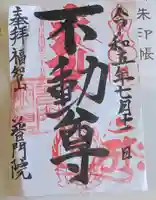 朱印帳
令和五年七月十二日
不動尊
奉拝 福智山 普門院